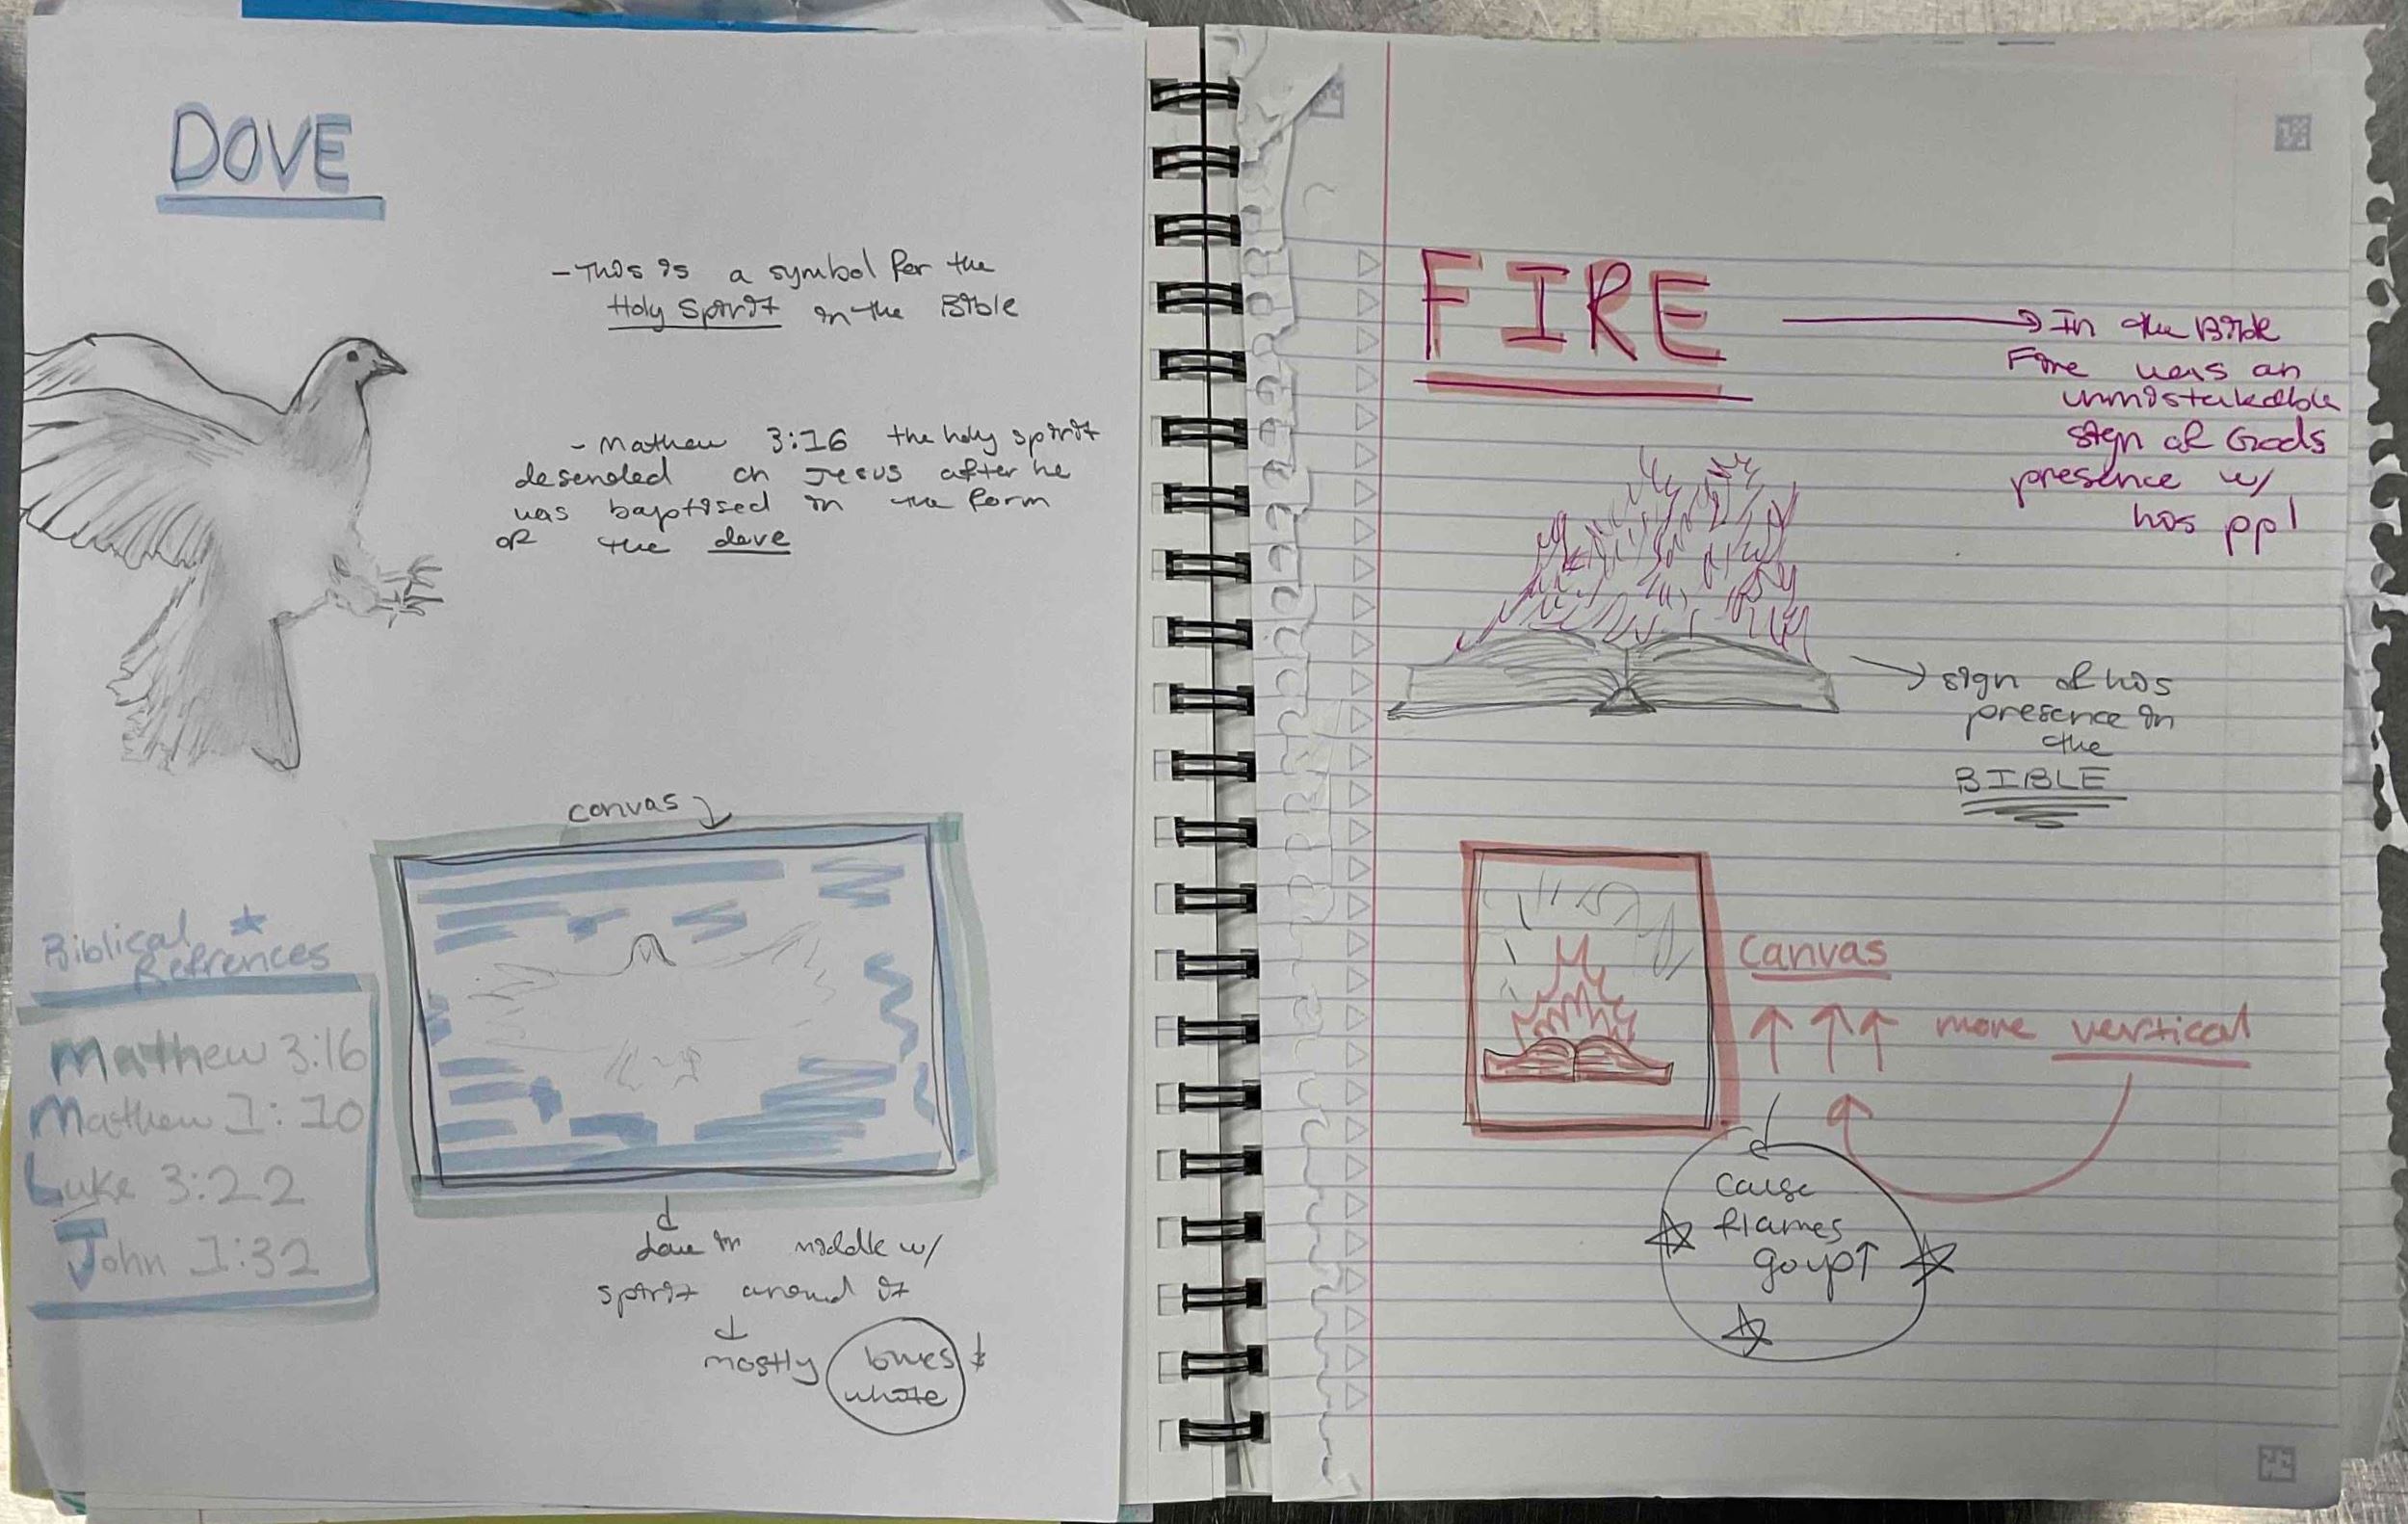 DOVE
- This is a symbol for the
Holy Spirit in the Bible
- Mathew 3:16 the holy spirit
desended on Jesus after he
was baptised in the form
of the dove
canvas
Biblical
Refrences
Mathew 3:16
Mathew 1:10
Luke 3:22
John 1:32
dove in middle w/
spirit around it
mostly blues &
white
FIRE
In the Bible
Fire was an
unmistakable
sign of Gods
presence w/
his ppl
sign of his
presence in
the
BIBLE
Canvas
more vertical
cause
flames
go up↑